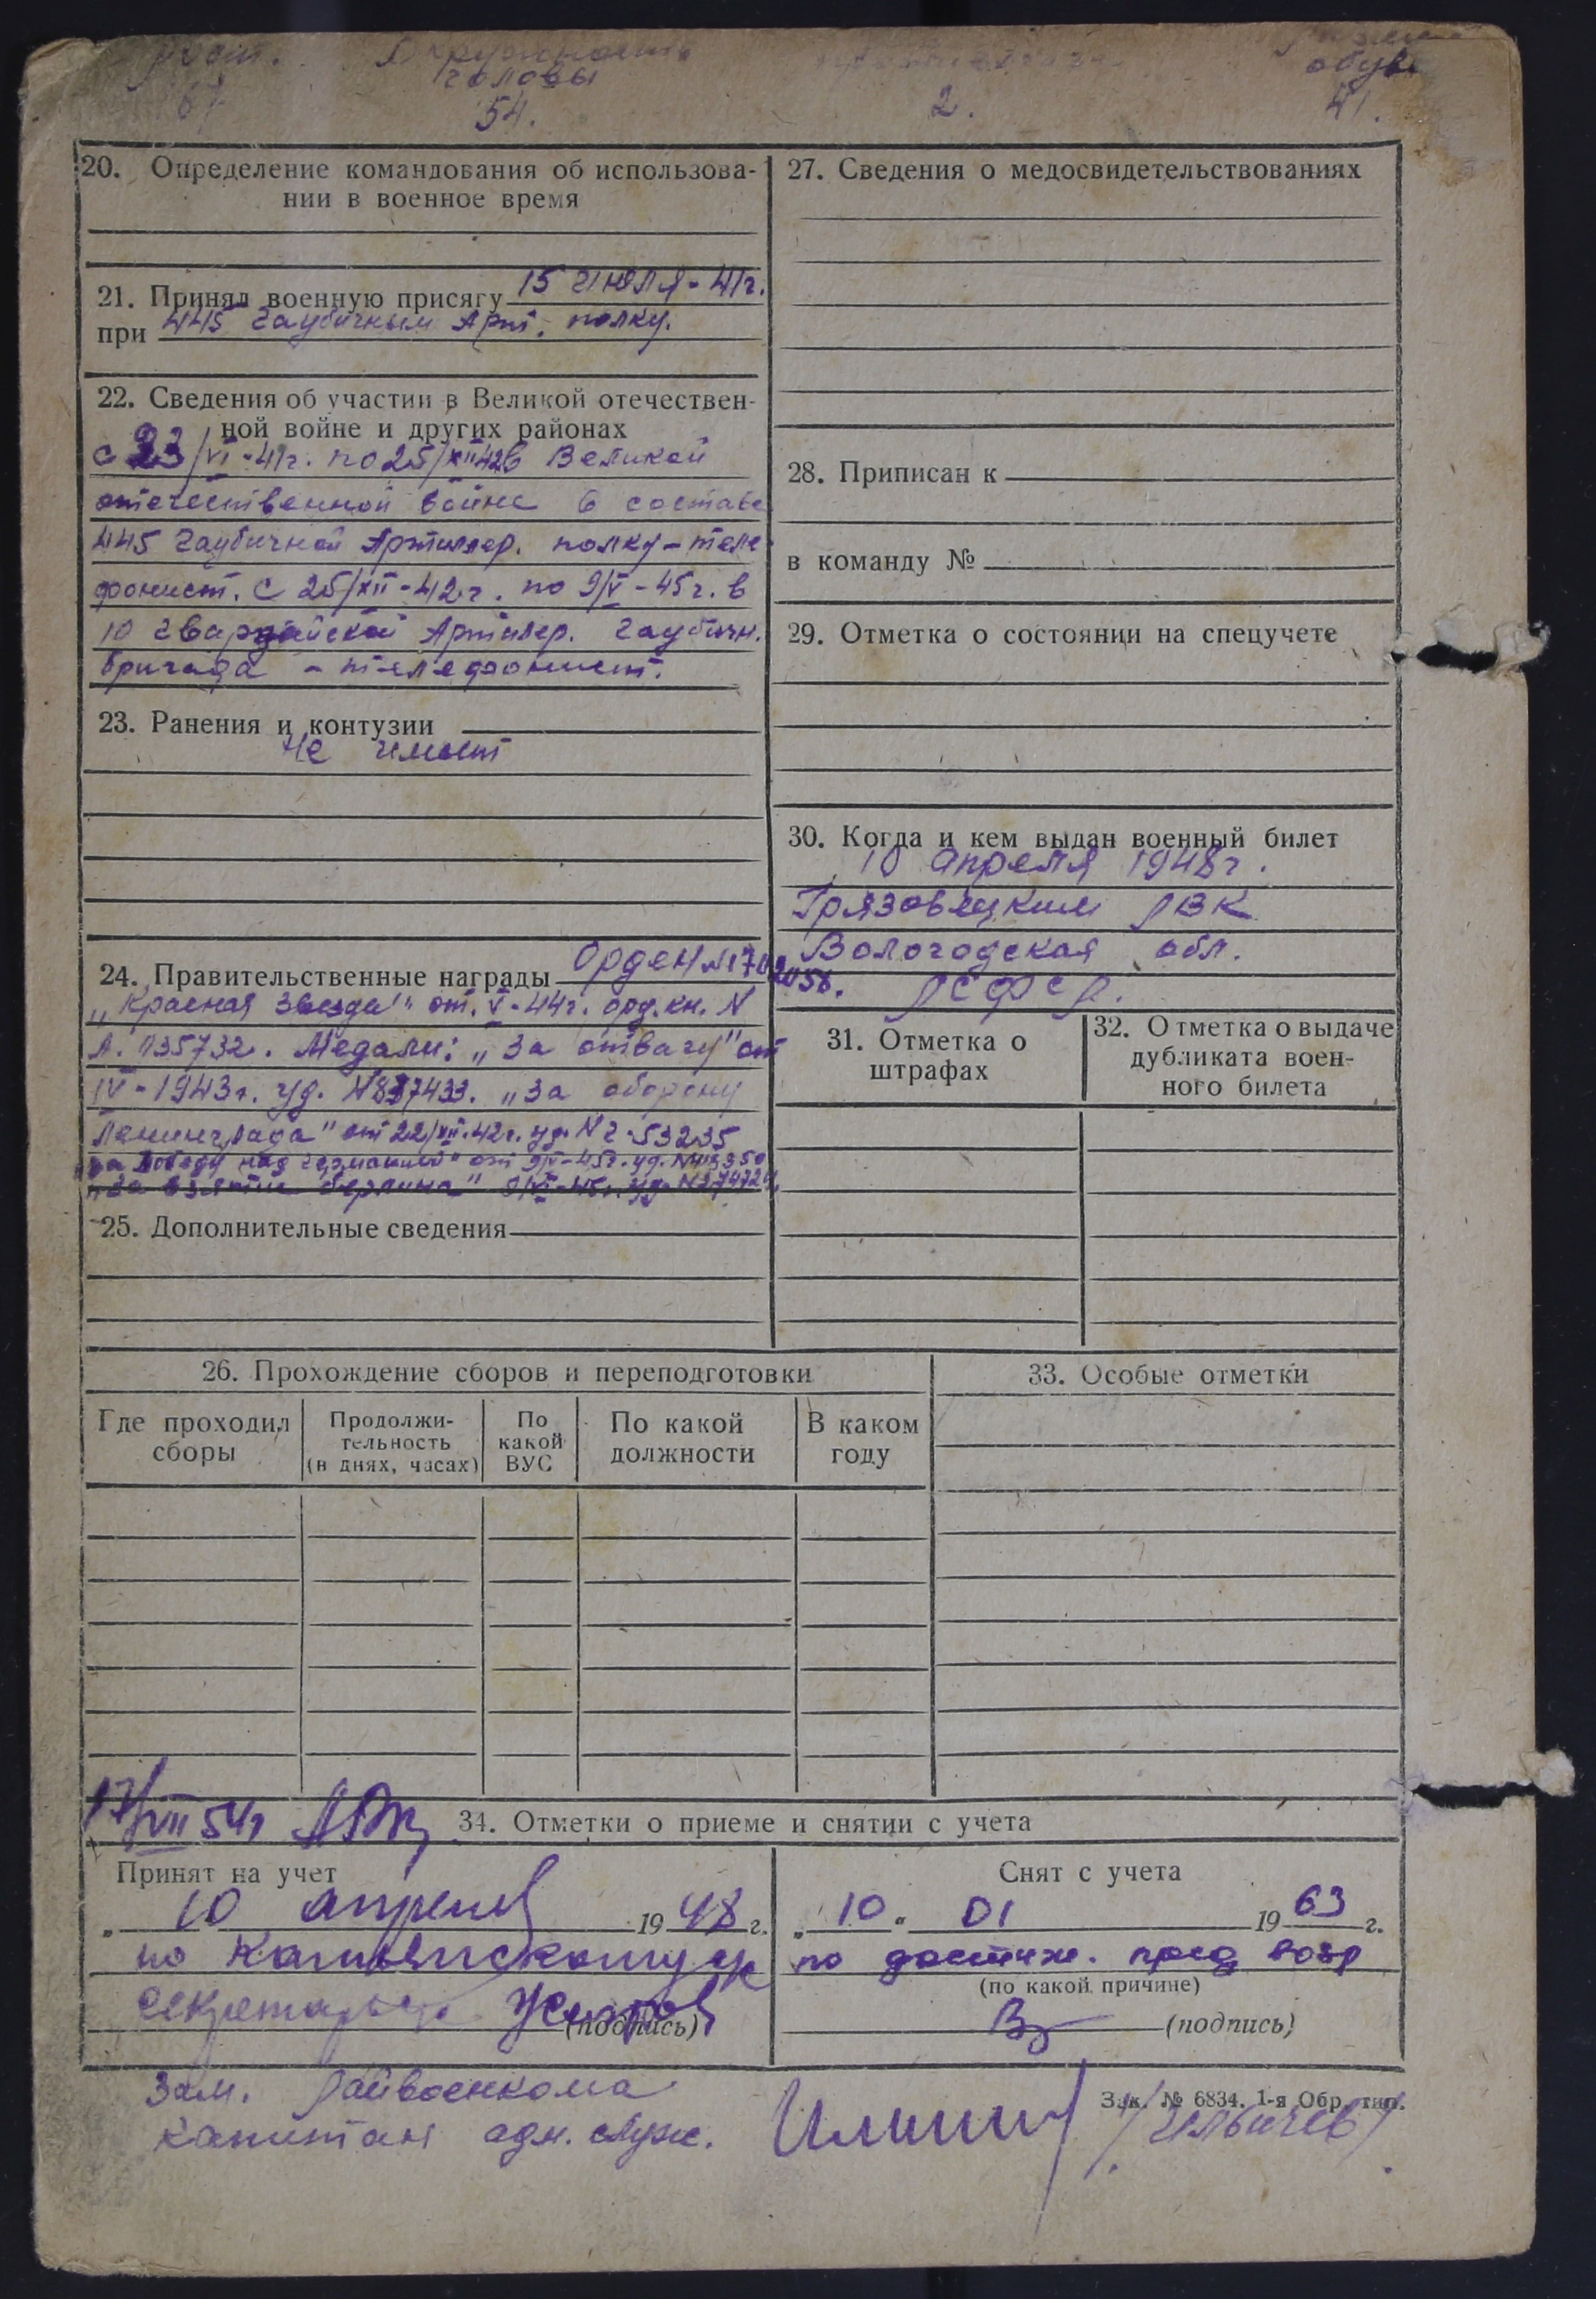 рост. Окружность размер
головы обуви
67 54. 2. 41.
20. Определение командования об использова-
нии в военное время
21. Принял военную присягу 15 Июля - 41г.
при 445 Гаубичным Арт. полку.
22. Сведения об участии в Великой отечествен-
ной войне и других районах
с 23/VI-41г. по 25/XII 42 в Великой
отечественной войне в составе
445 Гаубичной Артиллер. полку - теле
фонист. С 25/XII-42г. по 9/V-45г. в
10 гвардейской Артилер. Гаубичн.
бригада - телефонист.
23. Ранения и контузии
Не имеет
24. Правительственные награды Орден №
„Красная Звезда" от. V-44г. орд. кн. N
Л. 135732. Медали: „За отвагу" от
IV-1943г. уд. № 887433. „За оборону
Ленинграда" от 22/XII.42г. уд. N
„За победу над германией" от 9/V-45г. уд. N
„За взятие берлина" уд. N
25. Дополнительные сведения
27. Сведения о медосвидетельствованиях
28. Приписан к
в команду №
29. Отметка о состоянии на спецучете
30. Когда и кем выдан военный билет
10 апреля 1948г.
Грязовецким РВК
Вологодская обл.
РСФСР.
31. Отметка о
штрафах
32. Отметка о выдаче
дубликата воен-
ного билета
26. Прохождение сборов и переподготовки
Где проходил
сборы
Продолжи-
тельность
(в днях, часах)
По
какой
ВУС
По какой
должности
В каком
году
33. Особые отметки
17/VII 54г
34. Отметки о приеме и снятии с учета
Принят на учет
„ 10 апреля 1948 г.
по
секретарь
(подпись)
Снят с учета
„ 10 " 01 1963 г.
по достиж. пред возр
(по какой причине)
(подпись)
Зак. № 6834. 1-я Обр. тип.
Зам. Райвоенкома
капитан адм. служ. /Ильичев/